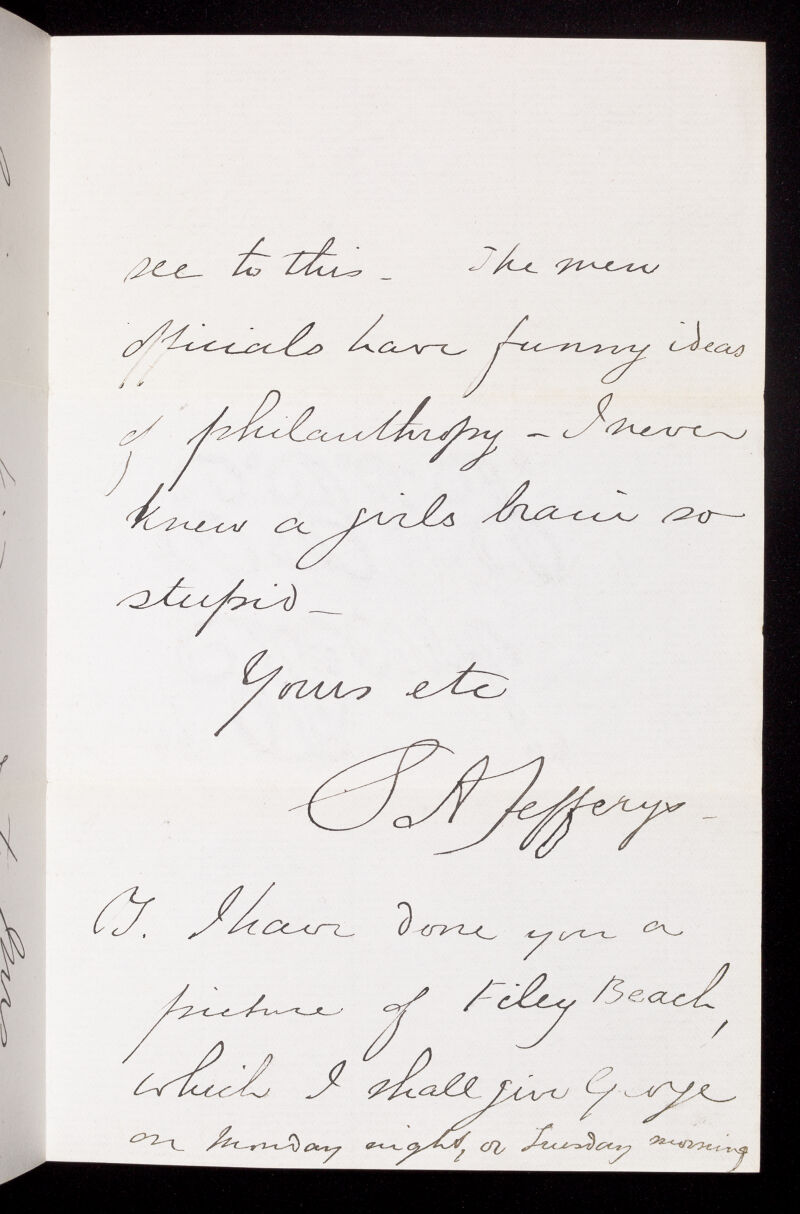 see to this – The men
officials have funny ideas
of philanthropy – I never
knew a girls brain so
stupid –
Yours etc
S A Jefferys –
I have done you a
picture of Filey Beach,
which I shall give George
on Monday night, or Tuesday morning